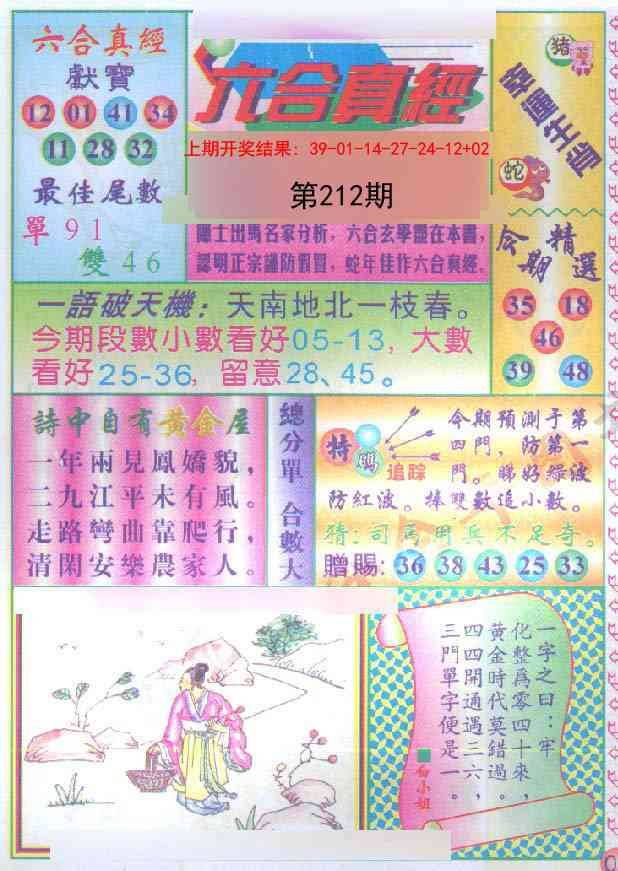 六合真經
獻寶
12 01 41 34
11 28 32
最佳尾數
單 9 1
雙 4 6
六合真經
上期开奖结果: 39-01-14-27-24-12+02
第212期
出馬名家分析，六合玄學盡在本書，
認明正宗謹防假冒，蛇年佳作六合真經。
豬
蛇
今期精選
35 18
46
39 48
一語破天機：天南地北一枝春。
今期段數小數看好05-13，大數
看好25-36，留意28、45。
詩中自有黃金屋
一年兩見鳳嬌貌，
二九江平未有風。
走路彎曲靠爬行，
清閑安樂農家人。
總分單 合數大
特碼
追踪
今期預測于第
四門，防第一
門。睇好綠波
防紅波。捧雙數追小數。
猜：司馬用兵不足奇。
贈賜: 36 38 43 25 33
一字之曰：牢
化整爲零四十來，
黃金時代莫錯過，
四四開通遇三六，
三門單字便是一。
白小姐